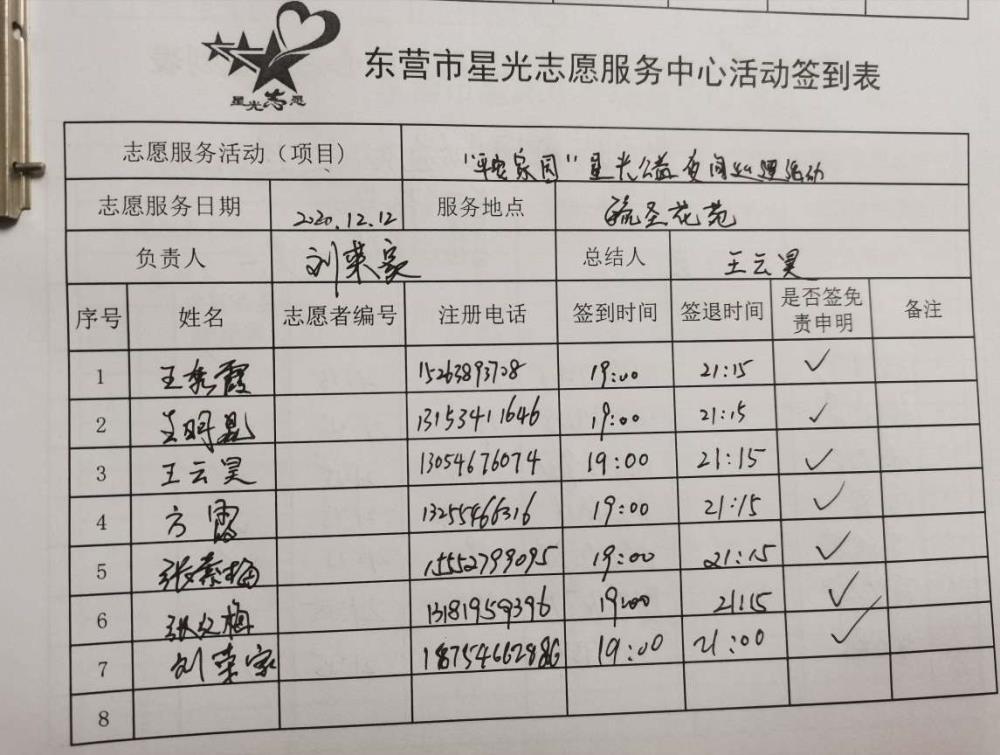 星光志愿
东营市星光志愿服务中心活动签到表
志愿服务活动（项目） "平安家园"星光公益夜间巡逻活动
志愿服务日期 2020.12.12 服务地点 毓圣花苑
负责人 刘荣家 总结人 王云昊
序号 姓名 志愿者编号 注册电话 签到时间 签退时间 是否签免责申明 备注
1 王秀霞 15263893728 19:00 21:15 ✓
2 13153411646 19:00 21:15 ✓
3 王云昊 13054676074 19:00 21:15 ✓
4 方雷 13255466316 19:00 21:15 ✓
5 张素梅 15552799095 19:00 21:15 ✓
6 张文梅 13181959396 19:00 21:15 ✓
7 刘荣家 19:00 21:00 ✓
8